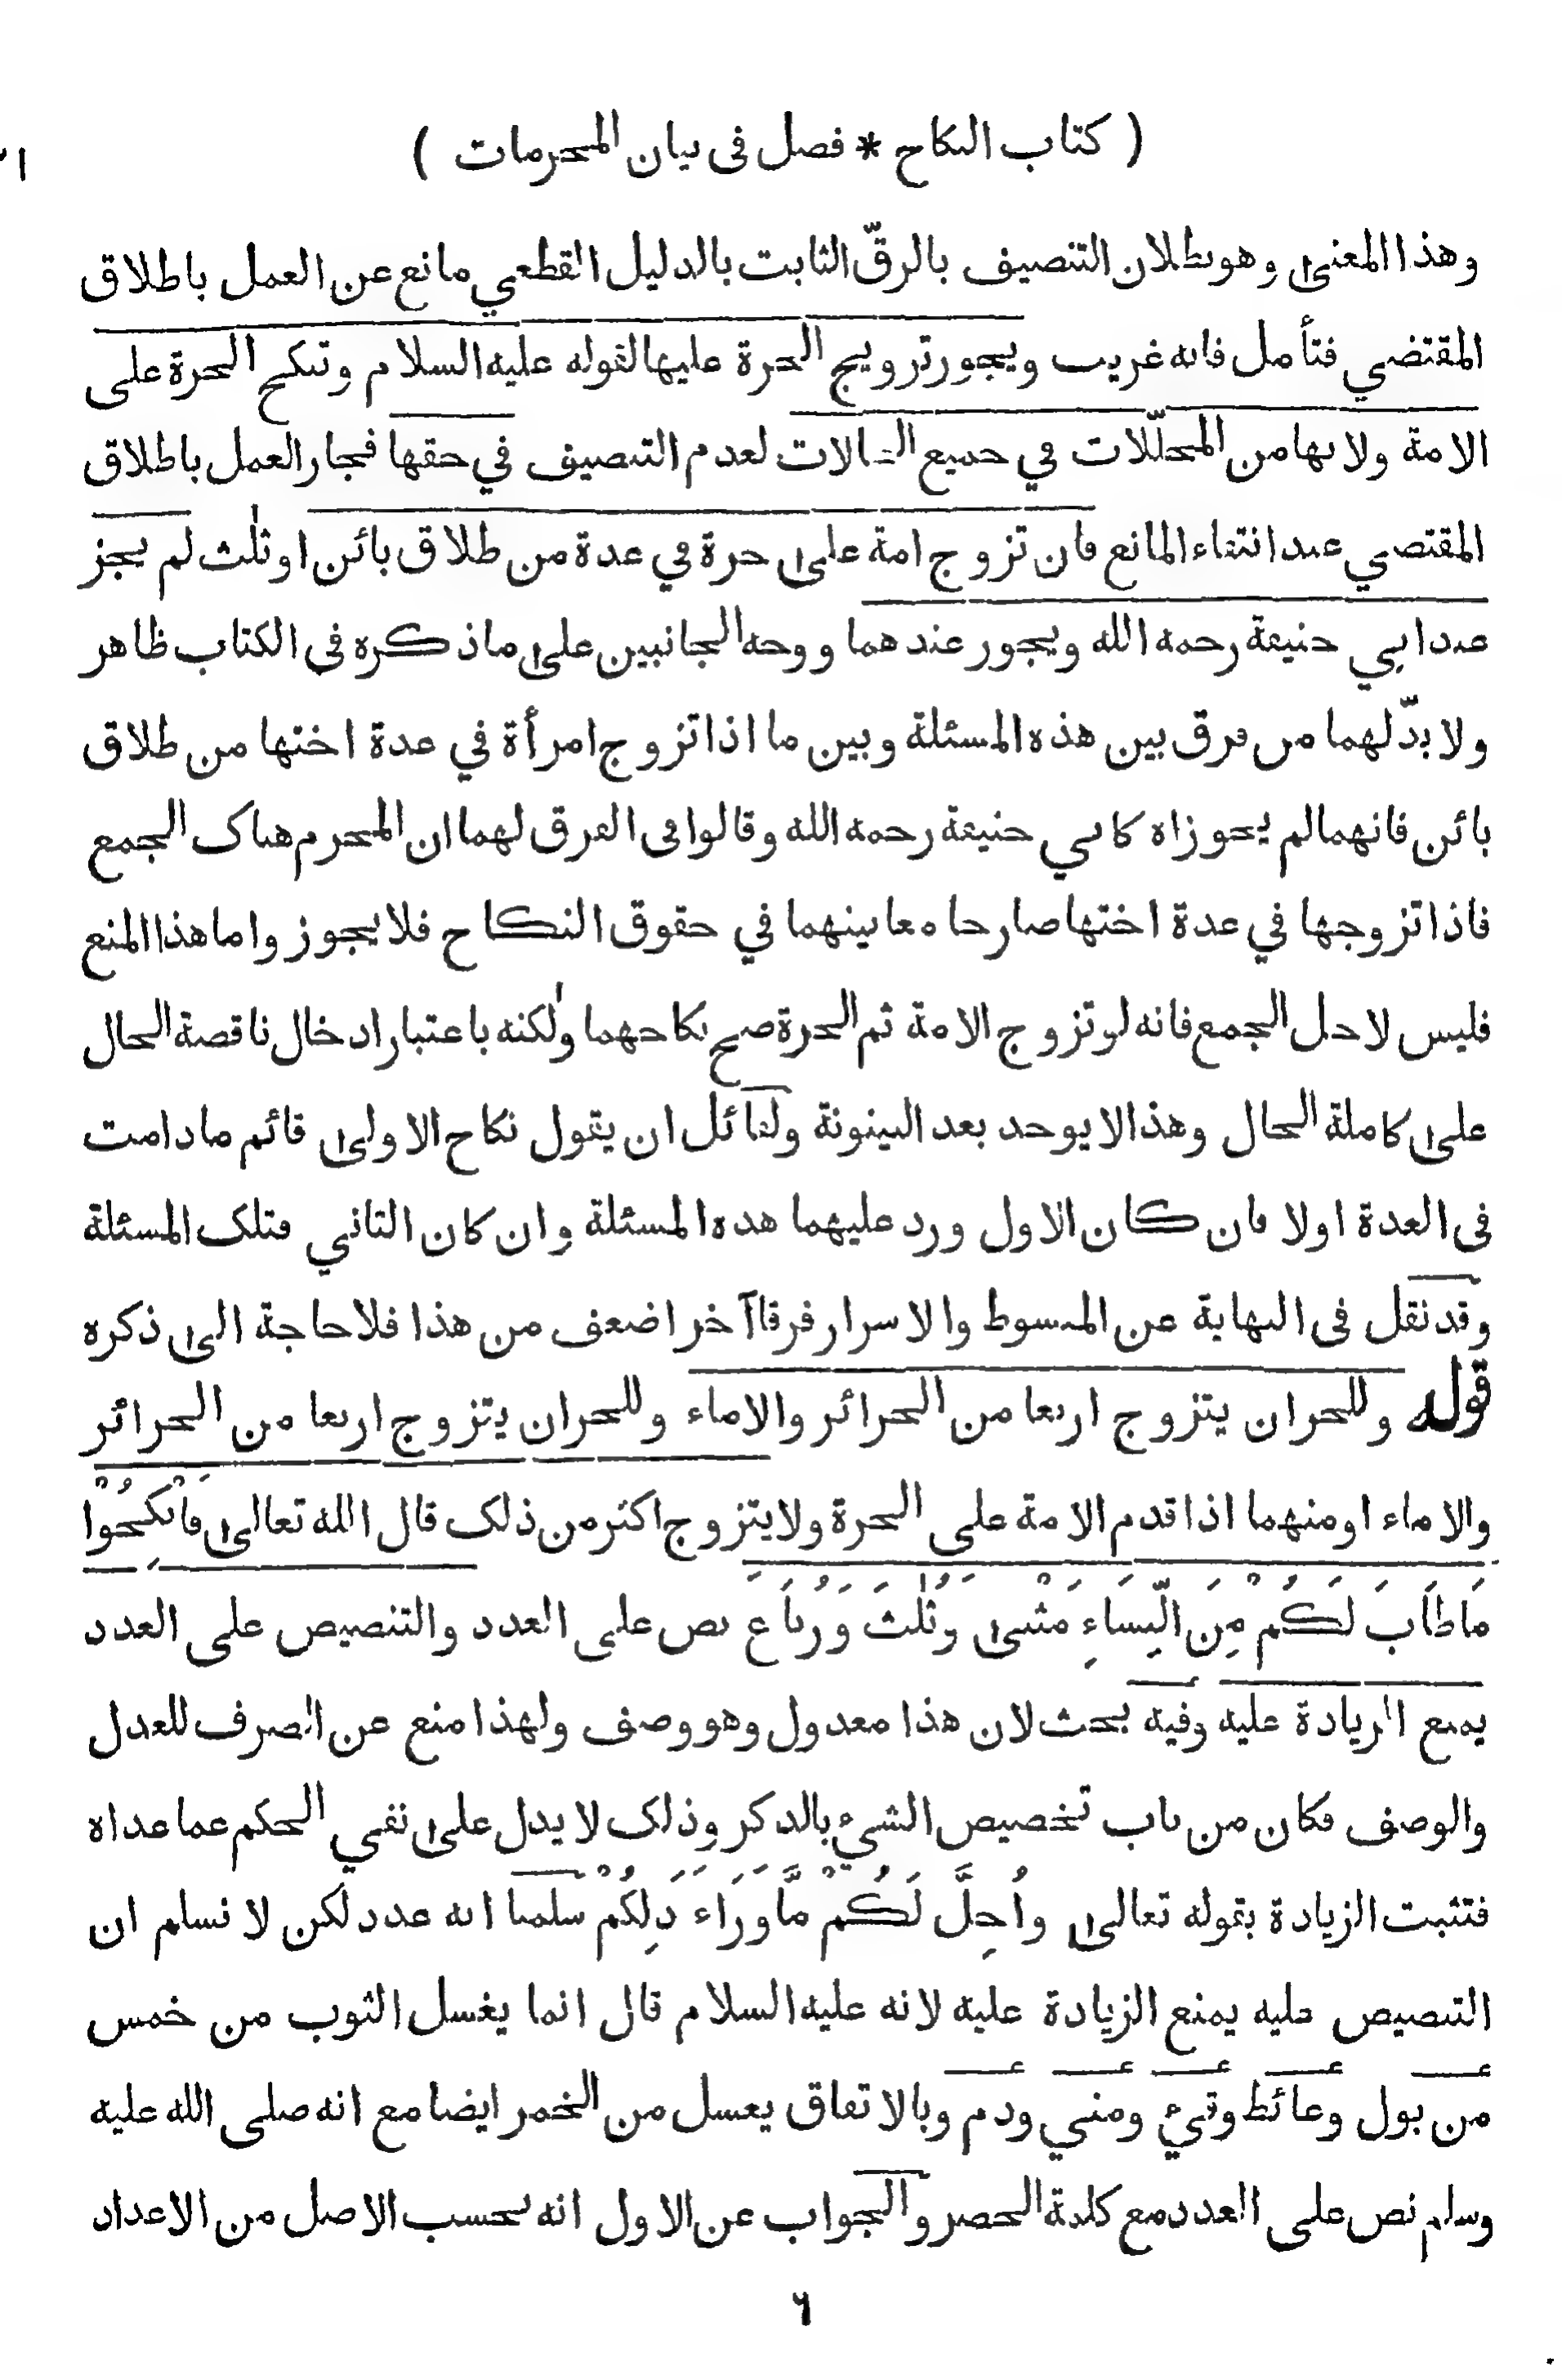 ( كتاب النكاح * فصل فى بيان المحرمات )
وهذا المعنى وهو بطلان التنصيف بالرقّ الثابت بالدليل القطعي مانع عن العمل باطلاق
المقتضي فتأمل فانه غريب ويجوز تزويج الحرة عليها لقوله عليه السلام وتنكح الحرة على
الامة ولانها من المحلّلات في جميع الحالات لعدم التنصيف في حقها فجاز العمل باطلاق
المقتضي عند انتفاء المانع فان تزوج امة على حرة في عدة من طلاق بائن او ثلٰث لم يجز
عند ابي حنيفة رحمه الله ويجوز عندهما ووجه الجانبين على ما ذكره فى الكتاب ظاهر
ولا بدّ لهما من فرق بين هذه المسئلة وبين ما اذا تزوج امرأة في عدة اختها من طلاق
بائن فانهما لم يجوزاه كابي حنيفة رحمه الله وقالوا فى الفرق لهما ان المحرم هناك الجمع
فاذا تزوجها في عدة اختها صار جامعا بينهما في حقوق النكاح فلا يجوز واما هذا المنع
فليس لاجل الجمع فانه لو تزوج الامة ثم الحرة صح نكاحهما ولٰكنه باعتبار ادخال ناقصة الحال
على كاملة الحال وهذا لا يوجد بعد البينونة ولقائل ان يقول نكاح الاولى قائم ما دامت
فى العدة اولا فان كان الاول ورد عليهما هذه المسئلة وان كان الثاني فتلك المسئلة
وقد نقل فى النهاية عن المبسوط والاسرار فرقا آخر اضعف من هذا فلا حاجة الى ذكره
قوله وللحر ان يتزوج اربعا من الحرائر والاماء وللحر ان يتزوج اربعا من الحرائر
والاماء او منهما اذا قدم الامة على الحرة ولا يتزوج اكثر من ذلك قال الله تعالى فَانْكِحُوْا
مَا طَابَ لَكُمْ مِنَ النِّسَاءِ مَثْنى وَثُلٰثَ وَرُبَاعَ نص على العدد والتنصيص على العدد
يمنع الزيادة عليه وفيه بحث لان هذا معدول وهو وصف ولهذا منع عن الصرف للعدل
والوصف فكان من باب تخصيص الشيء بالذكر وذلك لا يدل على نفي الحكم عما عداه
فتثبت الزيادة بقوله تعالى واُحِلَّ لَكُمْ مَّا وَرَاءَ ذَلِكُمْ سلمنا انه عدد لكن لا نسلم ان
التنصيص عليه يمنع الزيادة عليه لانه عليه السلام قال انما يغسل الثوب من خمس
من بول وغائط وقيء ومني ودم وبالاتفاق يغسل من الخمر ايضا مع انه صلى الله عليه
وسلم نص على العدد مع كلمة الحصر والجواب عن الاول انه بحسب الاصل من الاعداد